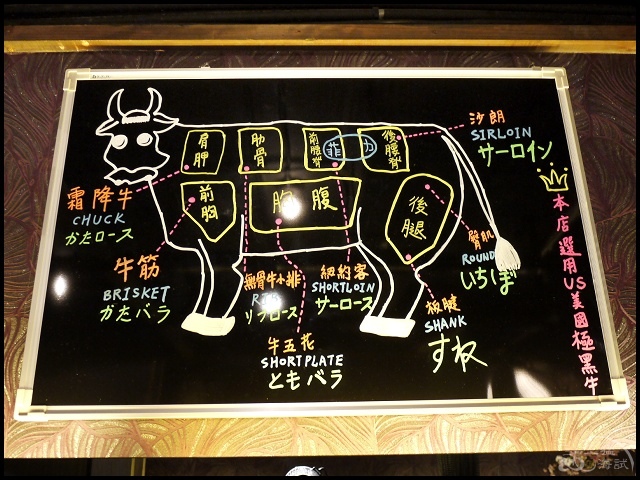 肩胛
肋骨
前腰脊
菲力
後腰脊
前胸
胸腹
後腿
沙朗
SIRLOIN
サーロイン
霜降牛
CHUCK
かたロース
牛筋
BRISKET
かたバラ
無骨牛小排
RIB
リブロース
紐約客
SHORTLOIN
サーロース
牛五花
SHORTPLATE
ともバラ
臀肌
ROUND
いちぼ
板腱
SHANK
すね
本店選用US美國極黑牛